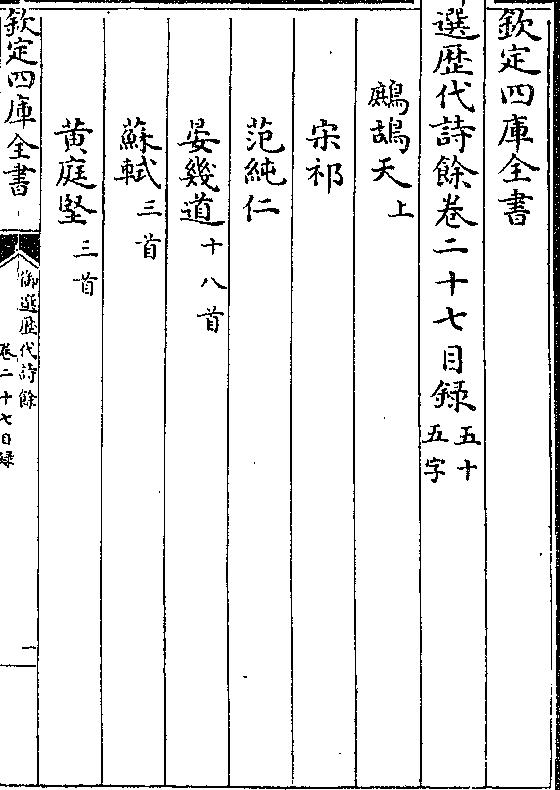 欽定四庫全書
選歷代詩餘卷二十七目録五十五字
鷓鴣天上
宋祁
范純仁
晏幾道十八首
蘇軾三首
黄庭堅三首
欽定四庫全書
御選歷代詩餘
卷二十七目録
一